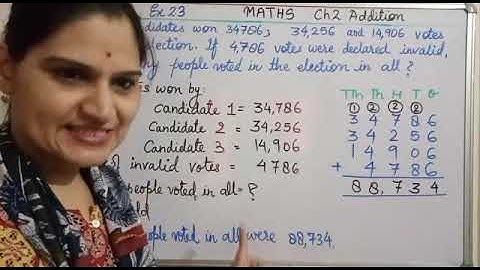 Ex 23 MATHS Ch2 Addition
didates won 34786, 34,256 and 14,906 votes
lection. If 4,786 votes were declared invalid,
ny people voted in the election in all ?
is won by:
Candidate 1 = 34,786
Candidate 2 = 34,256
Candidate 3 = 14,906
invalid votes = 4786
people voted in all = ?
ld
eople voted in all were 88,734.
TTh Th H T O
1 2 2 2
3 4 7 8 6
3 4 2 5 6
1 4 9 0 6
+ 4 7 8 6
8 8, 7 3 4